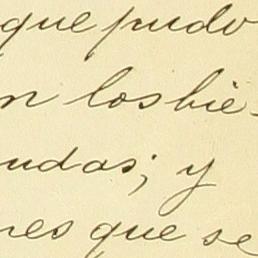 que pudo
n los bie-
udas; y
nes que se